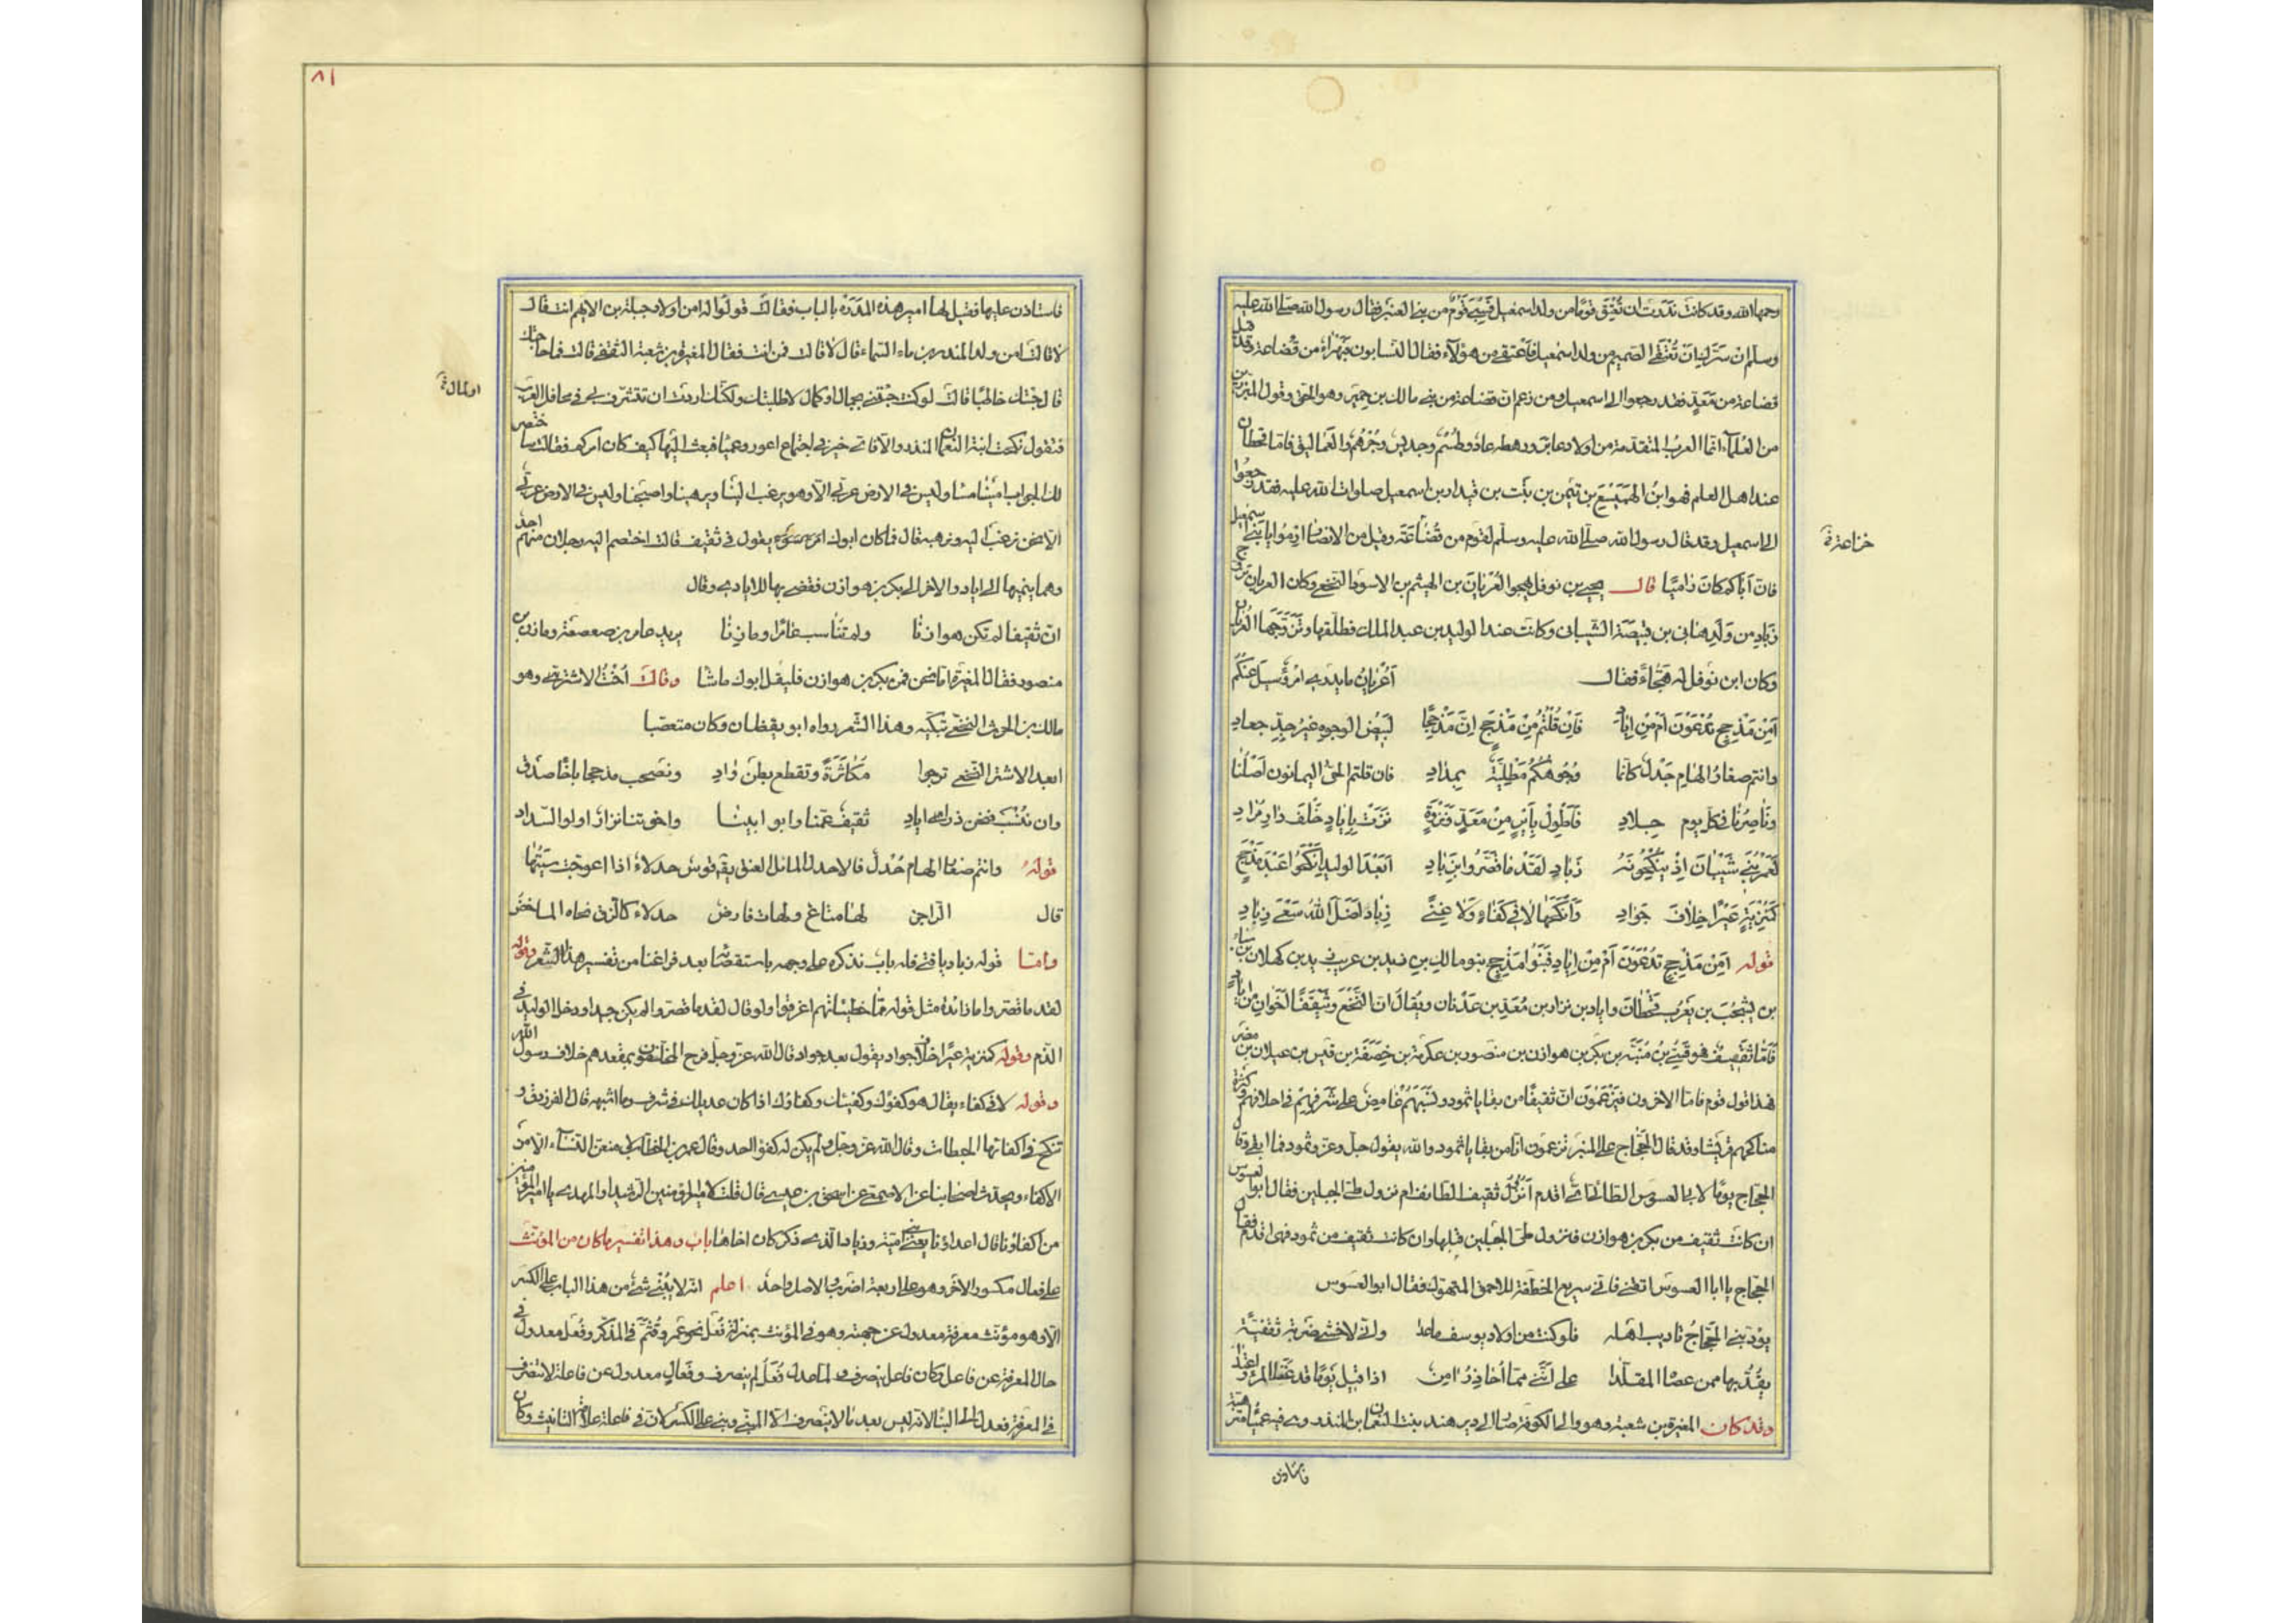 رحمها الله وقد كانت نذرت ان تعتق قوما من ولد اسمعيل فسبي قوم من بني العنبر فقال رسول الله صلى الله عليه
وسلم ان سرك ان تعتقى الصميم من ولد اسمعيل فاعتقي من هؤلاء فقال النسابون فبهراء من قضاعة وقد قيل
قضاعة من معد فقد رجعوا الى اسمعيل ومن زعم ان قضاعة من بني مالك بن حمير وهو الحق وقول المبرزين
من العلماء انما العرب المتقدمة من اولاد عابر ورهطه عاد وطسم وجديس وجرهم والعماليق فاما قحطان
عند اهل العلم فهو ابن الهميسع بن تيمن بن نبت بن قيدار بن اسمعيل صلوات الله عليه فقد رجعوا
الى اسمعيل وقد قال رسول الله صلى الله عليه وسلم لقوم من قضاعة وقيل من الانصار ارموا يا بني اسمعيل
خزاعة
فان اباكم كان راميا قال يحيى بن نوفل يهجو العريان بن الهيثم بن الاسود النخعي وكان العريان تزوج
زباد من ولد هانئ بن قبيصة الشيباني وكانت عند الوليد بن عبد الملك فطلقها وتزوجها العريان
وكان ابن نوفل له هجاء فقال أعريان ما يدرى امرؤ سيل عنكم
أمن مذحج تدعون ام من اياد فان قلتم من مذحج ان مذحجا لبيض الوجوه غير جد جعاد
وانتم صغار الهام حدل كانما وجوهكم مطلية بمداد فان قلتم الحي اليمانون اصلنا
وناصرنا في كل يوم جلاد فاطول باير من معد ونزوة نزت باياد خلف دار مراد
لعمر بني شيبان اذ ينكحونه زباد لقد ما قصروا بزباد ابعد الوليد انكحوا عبد مذحج
كمنزية عيرا خلاف جواد وانكحها لا في كفاء ولا غنى زياد اضل الله سعي زياد
قوله امن مذحج تدعون ام من اياد فبنو مذحج بنو مالك بن زيد بن عريب بن زيد بن كهلان بن سبا
بن يشجب بن يعرب بن قحطان واياد بن نزار بن معد بن عدنان ويقال ان النخع وثقيفا اخوان من اياد
فاما ثقيف فهو قسي بن منبه بن بكر بن هوازن بن منصور بن عكرمة بن خصفة بن قيس بن عيلان بن مضر
فهذا قول قوم فاما الاخرون فيزعمون ان ثقيفا من بقايا ثمود ونسبهم غامض على شرفهم في اخلاقهم وكثرة
مناكحهم قريشا وقد قال الحجاج على المنبر تزعمون انا من بقايا ثمود والله يقول جل وعز وثمود فما ابقى وقال
الحجاج يوما لابى العسوس الطائي اي اقدم أنزول ثقيف الطائف ام نزول طي الجبلين فقال ابو العسوس
ان كانت ثقيف من بكر بن هوازن فنزول طي الجبلين قبلها وان كانت ثقيف من ثمود فهي اقدم فقال
الحجاج يا ابا العسوس اتقني فاني سريع الخطفة للاحمق المتهوك فقال ابو العسوس
يؤدبني الحجاج تاديب اهله فلو كنت من اولاد يوسف ما عدا واني لاخشى ضربة ثقفية
يقد بها ممن عصاه المقلدا على انني مما احاذر امن اذا قيل يوما قد عصا المرء واعتدا
وقد كان المغيرة بن شعبة وهو والي الكوفة صار الى دير هند بنت النعمان بن المنذر وهي فيه عمياء مترهبة
فاستاذن
٨١
فاستاذن عليها فقيل لها امير هذه المدرة بالباب فقالت قولوا له امن اولاد جبلة بن الايهم انت قال
لا قالت امن ولد المنذر بن ماء السماء قال لا قالت فمن انت فقال المغيرة بن شعبة الثقفي قالت فما حاجتك
قال جئتك خاطبا قالت لو كنت جئتني لجمال او كمال لاطلبتك ولكنك اردت ان تتشرف بي في محافل العرب
او لمال
فتقول نكحت ابنة النعمان بن المنذر والا فاي خير في اجتماع اعور وعمياء فبعث اليها كيف كان امركم فقالت ساختصر
لك الجواب امسينا مساء وليس في الارض عربي الا وهو يرغب الينا ويرهبنا واصبحنا وليس في الارض عربي
الا نحن نرغب اليه ونرهبه قال فما كان ابوك يقول في ثقيف قالت اختصم اليه رجلان منهم احد
وهما ينميها الى اياد والاخر الى بكر بن هوازن فقضى بها للايادي وقال
ان ثقيفا لم تكن هوازنا ولم تناسب عامرا ومازنا يريد عامر بن صعصعة ومازن بن
منصور فقال المغيرة اما نحن فمن بكر بن هوازن فليقل ابوك ما شاء وقالت اخت الاشتر وهو
مالك بن الحرث النخعي تبكيه وهذا الشعر رواه ابو يقظان وكان متعصبا
ابعد الاشتر النخعي نرجوا مكاثرة ونقطع بطن واد ونصحب مذحجا باخاء صدق
وان ننسب فنحن ذرى اياد ثقيف عمنا وابو ابينا واخوتنا نزار اولوا السداد
قوله وانتم صغار الهام حدل فالاحدل المائل العنق يق قوس حدلاء اذا اعوجت سيتها
قال الراجز لها متاع ولهاة فارض حدلاء كالزق نحاه الماخض
واما قوله زباد يا فتى فله باب نذكره على وجهه باستقصاء بعد فراغنا من تفسير هذا الشعر وقوله
لقد ما قصروا ما زائدة مثل قوله مما خطيئاتهم اغرقوا ولو قال لقد ما قصروا لم يكن جيدا ودخل الوليد في
الذم وقوله كمنزية عيرا خلاف جواد يقول بعد جواد قال الله عز وجل فرح المخلفون بمقعدهم خلاف رسول الله
وقوله لا في كفاء يقال هو كفؤك وكفيئك وكفاؤك اذا كان عديلك في شرف وما اشبهه قال الفرزدق و
تنكح في اكفائها الحبطات وقال الله عز وجل ولم يكن له كفوا احد وقال عمر بن الخطاب لامنعن النساء الا من
الاكفاء ويحدث اصحابنا عن الاصمعي عن اسحق بن عيسى قال قلت لامير المؤمنين الرشيد او المهدي يا امير المؤمنين
من اكفاؤنا قال اعداؤنا يعني بني امية وزياد الذي ذكر كان اخاها باب وهذا تفسير ما كان من المؤنث
على فعال مكسور الاخر وهو على اربعة اضرب والاصل واحد اعلم انه لا يبنى شيء من هذا الباب على الكسر
الا وهو مؤنث معرفة معدول عن جهته وهو في المؤنث بمنزلة فعل نحو عمر وقثم في المذكر وفعل معدول في
حال المعرفة عن فاعل وكان فاعل ينصرف ولما عدل فعل لم ينصرف وفعال معدول عن فاعلة لا تنصرف
في المعرفة فعدل الى البناء لانه ليس بعد ما لا ينصرف الا المبنى وبني على الكسر لان في فاعلة علامة التانيث وكان